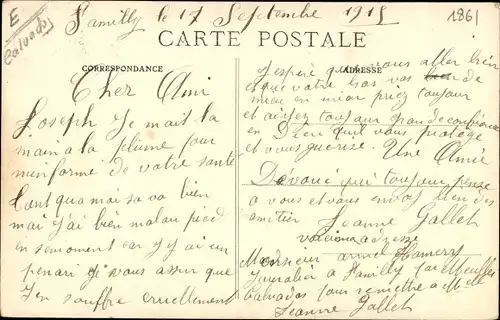 E
Calvados
Familly le 17 Septembre 1915
1861
CARTE POSTALE
CORRESPONDANCE
ADRESSE
Cher Ami
Joseph Je mait la
main a la plume pour
m'informé de votre santé
Cant qua moi sa va bien
mai J'ai bien mal au pied
en se moment car J'y ai un
penari Je vous assur que
J'en souffre cruellement
J'espère que vous aller bien
et que votre bras vas de
mieu en mieu priez toujour
et aiyez toujour gran de confience
en Dieu qu'il vous protège
et vous guerisse. Une Amie
Dévoué qui toujour pense
a vous et vous envoi bien des
amitier Jeanne Gallet
voici mon adresse
Monsieur Hamery
Journalier a Familly par Meulles
Calvados pour remettre a Mlle
Jeanne Gallet